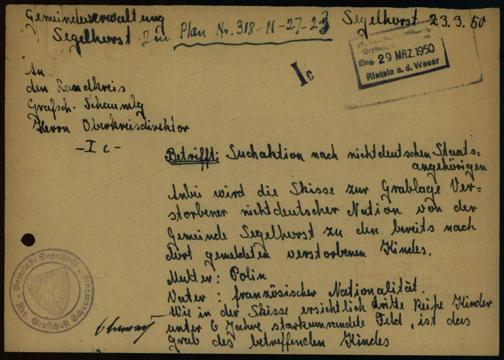 Gemeindeverwaltung
Segelhorst
Plan Nr. 318-N-27-23
Segelhorst 23.3.50
Eing. 29 MRZ. 1950
Rinteln a. d. Weser
Ic
An
den Landkreis
Grafsch. Schaumbg
Herrn Oberkreisdirektor
- I c -
Betrifft: Suchaktion nach nichtdeutschen Staats-
angehörigen
Anbei wird die Skisse zur Grablage Ver-
storbener nichtdeutscher Nation von der
Gemeinde Segelhorst zu den bereits nach
dort gemeldeten verstorbenen Kindes.
Mutter: Polin
Vater: französischer Nationalität.
Wie in der Skisse ersichtlich dritte Reihe Kinder
unter 6 Jahre starkumrandete Feld, ist das
Grab des betreffenden Kindes
Gemeinde Segelhorst
Krs. Grafschaft Schaumburg